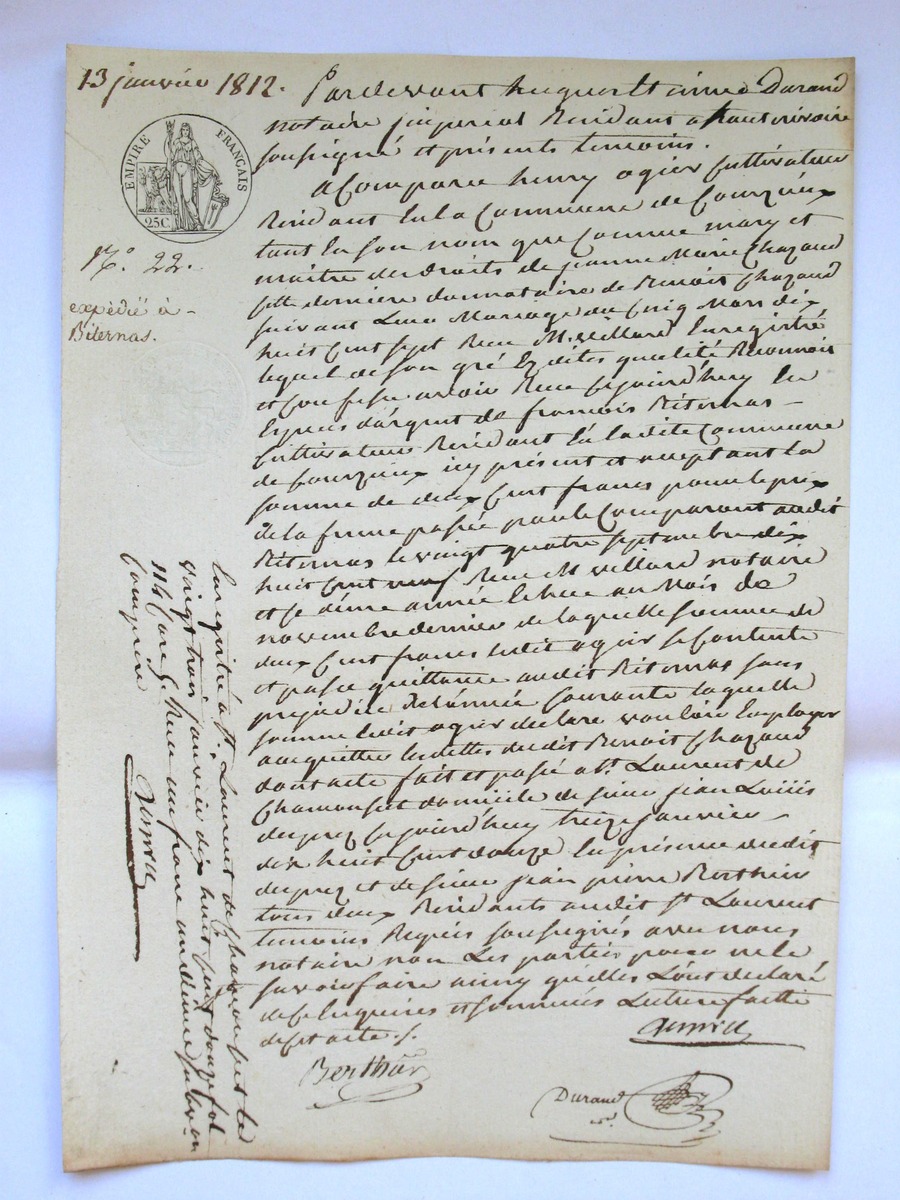 13 janvier 1812.
EMPIRE FRANÇAIS
25C.
N.° 22.
expédié à
Biternas.
Pardevant hugues Etienne Durand
notaire impérial Résidant a hauterivoire
soussigné et présents temoins.
a Comparu henry ogier Cultivateur
Résidant En la Commune de Courzieux
tant En son nom que Comme mary et
maitre des droits de jeanne Marie Chazaud
fille derniere donnataire de Benoit Chazaud
suivant Leur Mariage du Cinq Mars dix
huit Cent sept Reçu M. villard Enregistré
lequel de son gré Ez dites qualité Reconnois
et Confesse avoir Reçu Cejourd'huy En
Espèces d'argent de françois Biternas
Cultivateur Résidant En ladite Commune
de Courzieux icy présent et acceptant la
somme de deux Cent francs pour le prix
de la ferme passée par le Comparant audit
Biternas le vingt quatre septembre dix
huit Cent neuf Reçu M villard notaire
et de année Echue au Mois de
novembre dernier de laquelle somme de
deux Cent francs ledit ogier se Contente
et passe quittance audit Biternas sans
préjudice de l'année Courante laquelle
somme ledit ogier declare vouloir Employer
a acquitter les dettes dudit Benoit Chazaud
dont acte fait et passé a St. Laurent de
Chamousset domicile de sieur jean Louis
duprez Cejourd'huy treize janvier
dix huit Cent douze En présence dudit
duprez et de sieur jean pierre Berthier
tous deux Résidants audit St Laurent
temoins Requis soussignés avec nous
notaire non Les parties pour ne le
savoir faire ainsy qu'elles L'ont declaré
de Ce Enquises et sommées Lecture faitte
desdt acte ./.
Duprez
Berthier
Durand
Enregistré à St. Laurent de Chamousset le
vingt trois janvier dix huit Cent douze fol
114 Case 5. Reçu un franc un decime subvon
Comprise